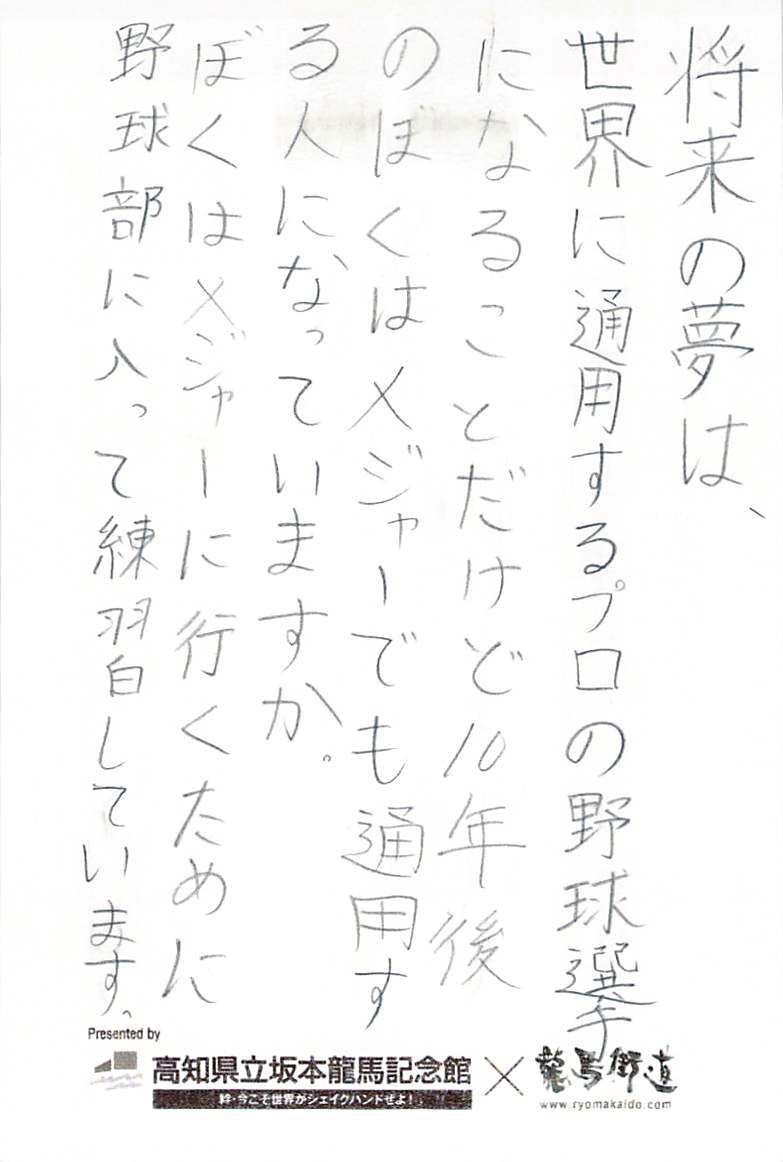 将来の夢は、
世界に通用するプロの野球選手
になることだけど10年後
のぼくはメジャーでも通用す
る人になっていますか。
ぼくはメジャーに行くために
野球部に入って練習しています。
Presented by
高知県立坂本龍馬記念館
絆・今こそ世界がシェイクハンドぜよ!
×
龍馬街道
www.ryomakaido.com